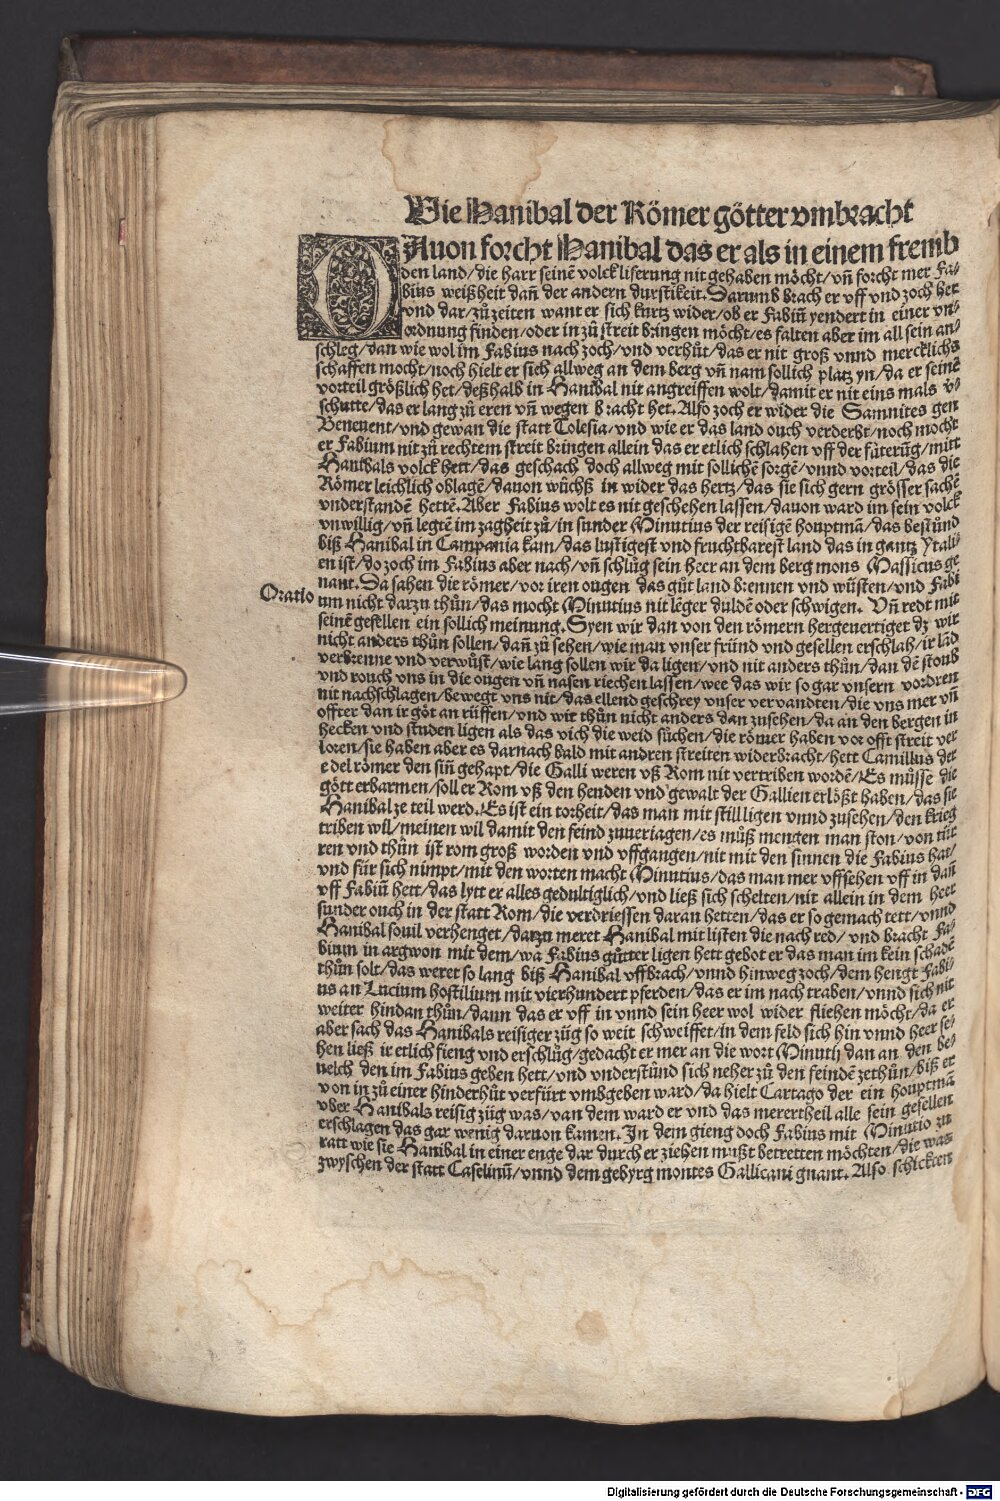 Wie Hanibal der Römer götter vmbracht
DAuon forcht Hanibal das er als in einem fremb
den land/die harr seinē volck liferung nit gehaben möcht/vñ forcht mer Fa⸗
bius weißheit dañ der andern durstikeit. Darumb brach er vff vnd zoch her
vnd dar/zů zeiten want er sich kurtz wider/ob er Fabiū yendert in einer vn⸗
ordnung finden/oder in zů streit bringen möcht/es falten aber im all sein an⸗
schleg/dan wie wol im Fabius nach zoch/vnd verhůt/das er nit groß vnnd mercklichs
schaffen mocht/noch hielt er sich allweg an dem berg vñ nam sollich platz yn/da er seinē
vorteil größlich het/deßhalb in Hanibal nit angreiffen wolt/damit er nit eins mals v̄⸗
schutte/das er lang zů eren vñ wegen bracht het. Also zoch er wider die Samnites gen
Beneuent/vnd gewan die statt Tolesia/vnd wie er das land ouch verderbt/noch mocht
er Fabium nit zů rechtem streit bringen allein das er etlich schlahen vff der fůterūg/mitt
Hanibals volck hett/das geschach doch allweg mit sollichē sorgē/vnnd vorteil/das die
Römer leichlich oblagē/dauon wůchß in wider das hertz/das sie sich gern grösser sachē
vnderstandē hettē. Aber Fabius wolt es nit geschehen lassen/dauon ward im sein volck
vnwillig/vñ legtē im zagheit zů/in sunder Minutius der reisigē houptmā/das bestůnd
biß Hanibal in Campania kam/das lustigest vnd fruchtbarest land das in gantz Ytali⸗
en ist/do zoch im Fabius aber nach/vñ schlůg sein heer an dem berg mons Massicus ge
nant. Da sahen die römer/vor iren ougen das gůt land brennen vnd wůsten/vnd Fabi
Oratio um nicht darzu thůn/das mocht Minutius nit lēger duldē oder schwigen. Vñ redt mit
seinē gesellen ein sollich meinung. Syen wir dan von den römern hergeuertiget dz wir
nicht anders thůn sollen/dañ zů sehen/wie man vnser frůnd vnd gesellen erschlah/ir lād
verbrenne vnd verwůst/wie lang sollen wir da ligen/vnd nit anders thůn/dan dē stoub
vnd rouch vns in die ougen vñ nasen riechen lassen/wee das wir so gar vnsern vordren
nit nachschlagen/bewegt vns nit/das ellend geschrey vnser verwandten/die vns mer vñ
offter dan ir göt an růffen/vnd wir thůn nicht anders dan zusehen/da an den bergen in
hecken vnd studen ligen als das vich die weid sůchen/die römer haben vor offt streit ver
loren/sie haben aber es darnach bald mit andren streiten widerbracht/hett Camillus der
edel römer den siñ gehapt/die Galli weren vß Rom nit vertriben wordē/Es můsse die
gött erbarmen/soll er Rom vß den henden vnd gewalt der Gallien erlößt haben/das sie
Hanibal ze teil werd. Es ist ein torheit/das man mit still ligen vnnd zusehen/den krieg
triben wil/meinen wil damit den feind zuueriagen/es můß mengen man ston/von tür
ren vnd thůn ist rom groß worden vnd vffgangen/nit mit den sinnen die Fabius hat/
vnd für sich nimpt/mit den worten macht Minutius/das man mer vffsehen vff in dañ
vff Fabiū hett/das lytt er alles gedultiglich/vnd ließ sich schelten/nit allein in dem heer
sunder ouch in der statt Rom/die verdriessen daran hetten/das er so gemach tett/vnnd
Hanibal souil verhenget/darzu meret Hanibal mit listen die nach red/vnd bracht Fa⸗
bium in argwon mit dem/wa Fabius gůtter ligen hett gebot er das man im kein schadē
thůn solt/das weret so lang biß Hanibal vffbrach/vnnd hinweg zoch/dem hengt Fabi⸗
us an Lucium hostilium mit vierhundert pferden/das er im nach traben/vnnd sich nit
weiter hindan thůn/dann das er vff in vnnd sein heer wol wider fliehen möcht/da er
aber sach das Hanibals reisiger züg so weit schweiffet/in dem feld sich hin vnnd heer se⸗
hen ließ ir etlich fieng vnd erschlůg/gedacht er mer an die wort Minutij dan an den be⸗
uelch den im Fabius geben hett/vnd vnderstůnd sich neher zů den feindē zethůn/biß er
von in zů einer hinderhůt verfürt vmbgeben ward/da hielt Cartago der ein houptmā
vber Hanibals reisig züg was/van dem ward er vnd das merertheil alle sein gesellen
erschlagen das gar wenig daruon kamen. In dem gieng doch Fabius mit Minutio zu
ratt wie sie Hanibal in einer enge dar durch er ziehen můßt betretten möchten/die was
zwyschen der statt Caselinū/vnnd dem gebyrg montes Gallicani gnant. Also schickten
Digitalisierung gefördert durch die Deutsche Forschungsgemeinschaft - DFG